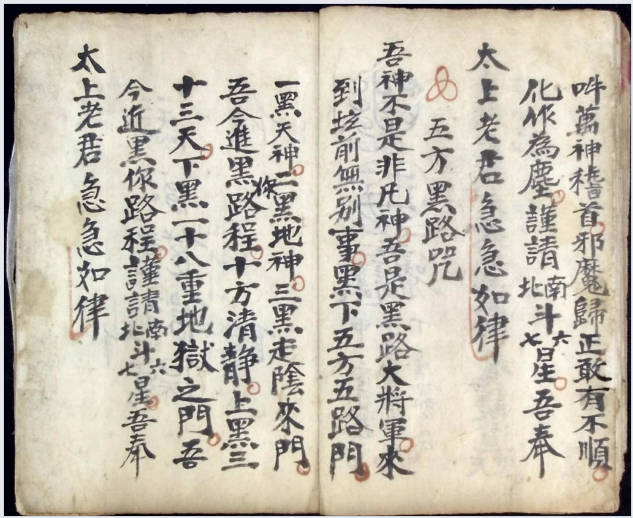 吽萬神稽首邪魔歸正敢有不順
化作為塵謹請南北斗六七星吾奉
太上老君急急如律
五方黑路咒
吾神不是非凡神吾是黑路大將軍來
到坛前無别事黑下五方五路門
一黑天神二黑地神三黑走陰來門
吾今進黑你路程十方清静上黑三
十三天下黑一十八重地獄之門吾
今近黑你路程謹請南北斗六七星吾奉
太上老君急急如律